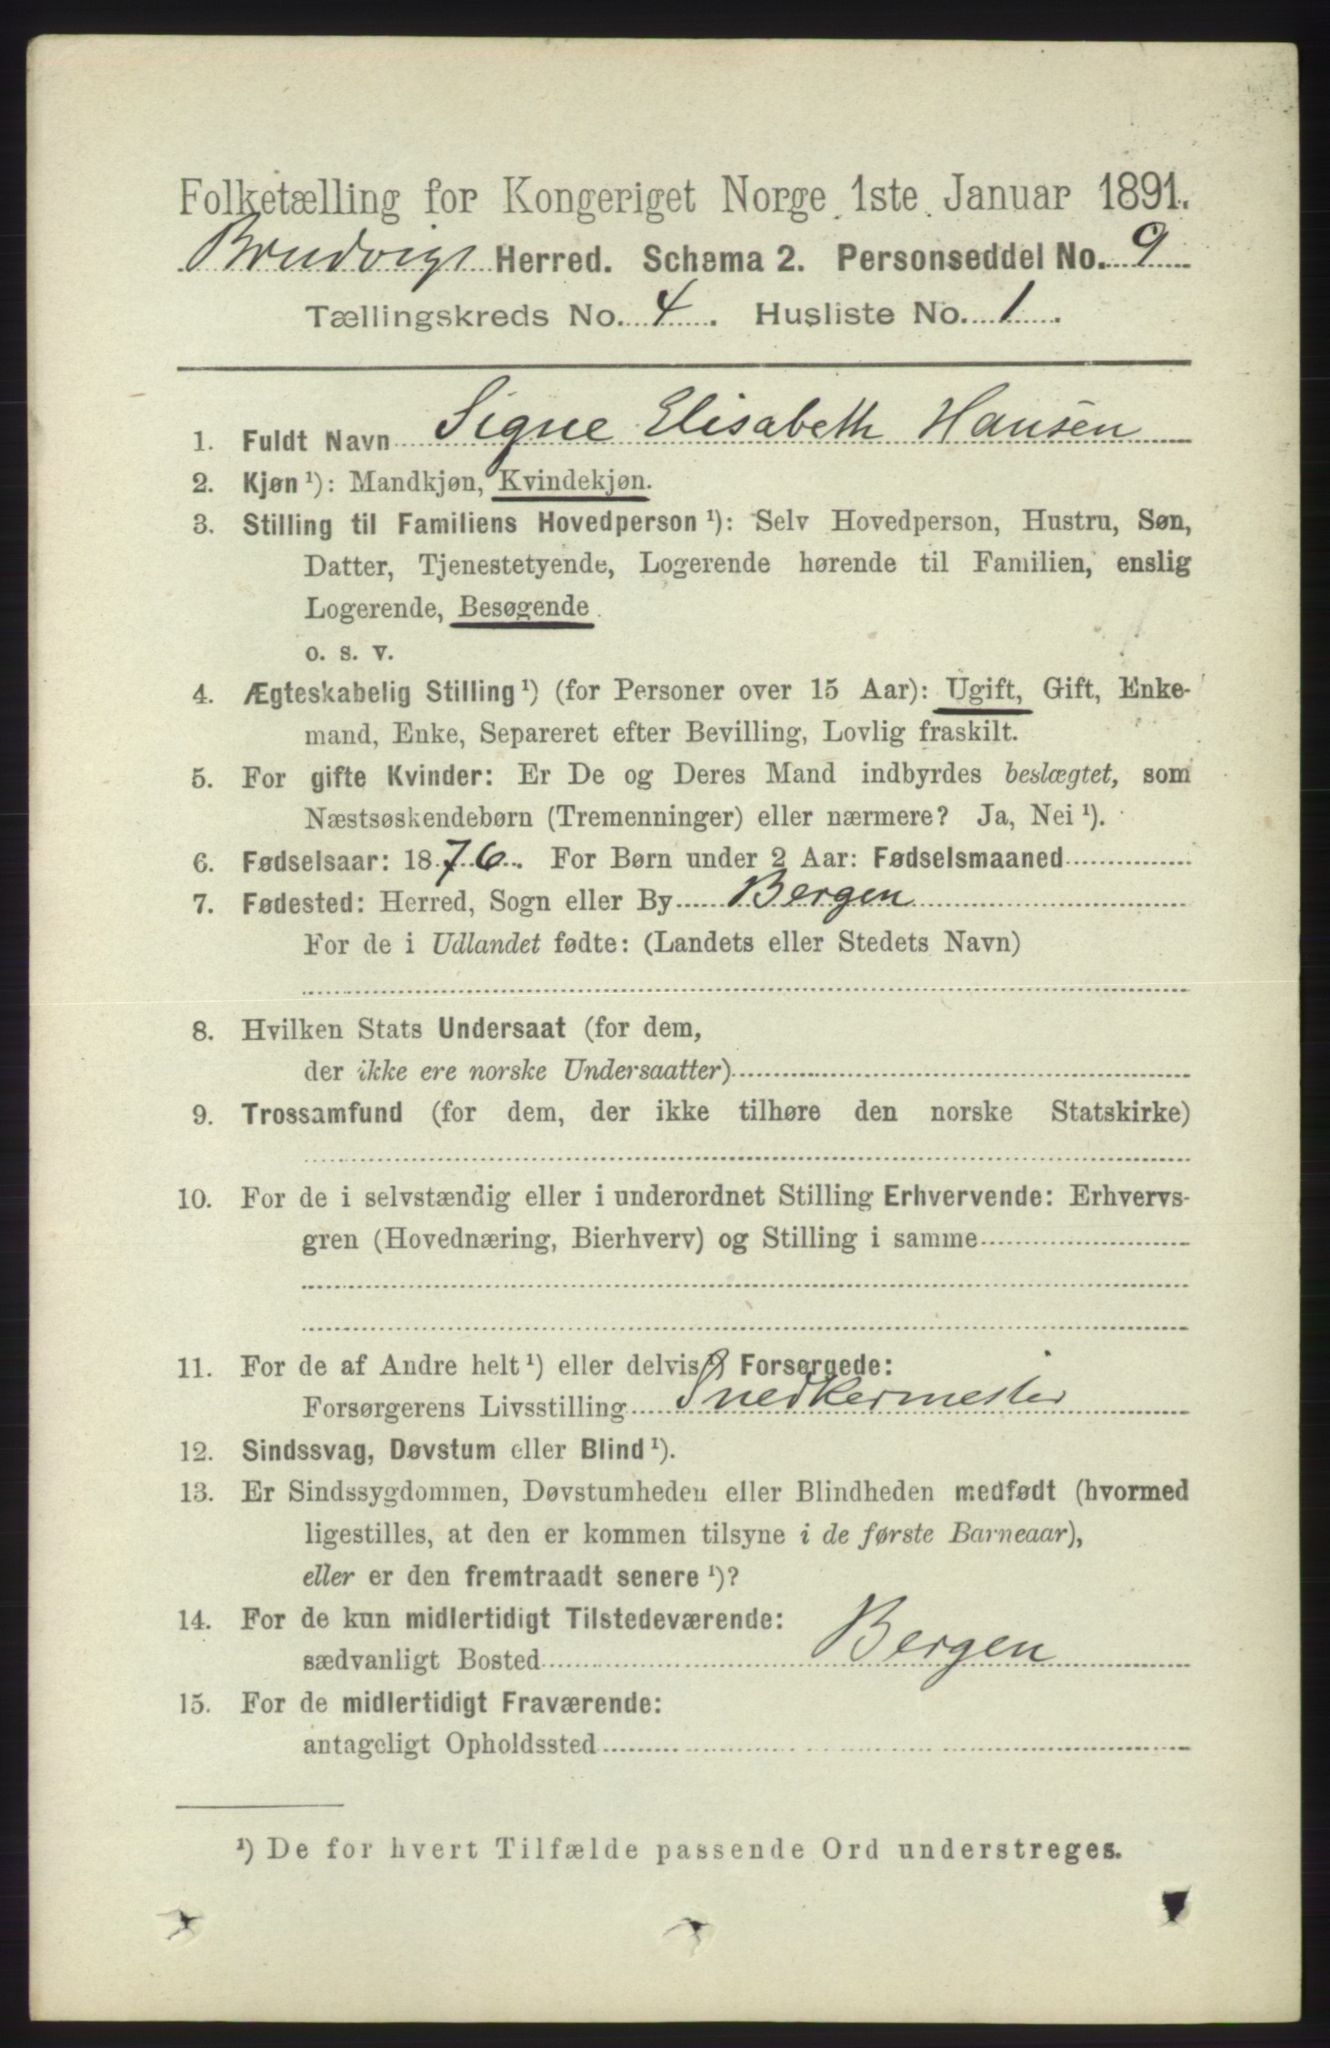 Folketælling for Kongeriget Norge 1ste Januar 1891.
Brudvigs Herred. Schema 2. Personseddel No. 9
Tællingskreds No. 4. Husliste No. 1.
1. Fuldt Navn Signe Elisabeth Hansen
2. Kjøn ¹): Mandkjøn, Kvindekjøn.
3. Stilling til Familiens Hovedperson ¹): Selv Hovedperson, Hustru, Søn,
Datter, Tjenestetyende, Logerende hørende til Familien, enslig
Logerende, Besøgende
o. s. v.
4. Ægteskabelig Stilling ¹) (for Personer over 15 Aar): Ugift, Gift, Enke-
mand, Enke, Separeret efter Bevilling, Lovlig fraskilt.
5. For gifte Kvinder: Er De og Deres Mand indbyrdes beslægtet, som
Næstsøskendebørn (Tremenninger) eller nærmere? Ja, Nei ¹).
6. Fødselsaar: 1876. For Børn under 2 Aar: Fødselsmaaned
7. Fødested: Herred, Sogn eller By Bergen
For de i Udlandet fødte: (Landets eller Stedets Navn)
8. Hvilken Stats Undersaat (for dem,
der ikke ere norske Undersaatter)
9. Trossamfund (for dem, der ikke tilhøre den norske Statskirke)
10. For de i selvstændig eller i underordnet Stilling Erhvervende: Erhvervs-
gren (Hovednæring, Bierhverv) og Stilling i samme
11. For de af Andre helt ¹) eller delvis ¹) Forsørgede:
Forsørgerens Livsstilling Snedkermester
12. Sindssvag, Døvstum eller Blind ¹).
13. Er Sindssygdommen, Døvstumheden eller Blindheden medfødt (hvormed
ligestilles, at den er kommen tilsyne i de første Barneaar),
eller er den fremtraadt senere ¹)?
14. For de kun midlertidigt Tilstedeværende:
sædvanligt Bosted Bergen
15. For de midlertidigt Fraværende:
antageligt Opholdssted
¹) De for hvert Tilfælde passende Ord understreges.